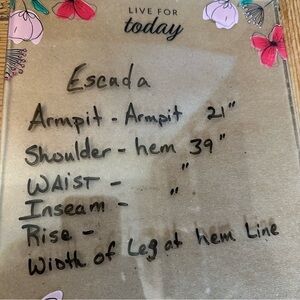 LIVE FOR
today
Escada
Armpit - Armpit 21"
Shoulder - hem 39"
WAIST - "
Inseam - "
Rise -
Width of Leg at hem Line